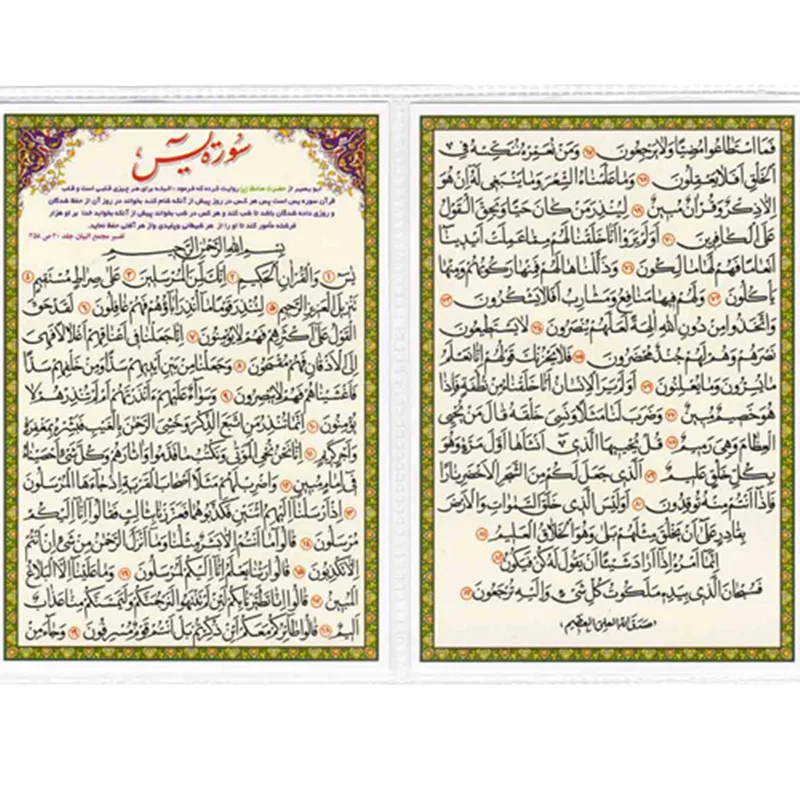 سُورَة يسٓ
ابو بصير از حضرت صادق (ع) روايت كرده كه فرمود : البته براى هر چيزى قلبى است و قلب
قرآن سوره يس است پس هر كس در روز پيش از آنكه شام كند بخواند در روز آن از حفظ شدگان
و روزى داده شدگان باشد تا شب كند و هر كس در شب بخواند پيش از آنكه بخوابد خدا بر او هزار
فرشته مأمور كند تا او را از هر شيطانى وپليدى واز هر آفتى حفظ نمايد.
تفسير مجمع البيان جلد ۲۰ ص ۳۵۸
بسم الله الرحمن الرحيم
يس ۱ والقران الحكيم ۲ انك لمن المرسلين ۳ على صراط مستقيم ۴
تنزيل العزيز الرحيم ۵ لتنذر قوما ما انذر اباؤهم فهم غافلون ۶ لقد حق
القول على اكثرهم فهم لا يؤمنون ۷ انا جعلنا فى اعناقهم اغلالا فهى
الى الاذقان فهم مقمحون ۸ وجعلنا من بين ايديهم سدا ومن خلفهم سدا
فاغشيناهم فهم لا يبصرون ۹ وسواء عليهم ءانذرتهم ام لم تنذرهم لا
يؤمنون ۱۰ انما تنذر من اتبع الذكر وخشى الرحمن بالغيب فبشره بمغفرة
واجر كريم ۱۱ انا نحن نحيي الموتى ونكتب ما قدموا واثارهم وكل شئ احصيناه
فى امام مبين ۱۲ واضرب لهم مثلا اصحاب القرية اذ جاءها المرسلون
۱۳ اذ ارسلنا اليهم اثنين فكذبوهما فعززنا بثالث فقالوا انا اليكم
مرسلون ۱۴ قالوا ما انتم الا بشر مثلنا وما انزل الرحمن من شئ ان انتم
الا تكذبون ۱۵ قالوا ربنا يعلم انا اليكم لمرسلون ۱۶ وما علينا الا البلاغ
المبين ۱۷ قالوا انا تطيرنا بكم لئن لم تنتهوا لنرجمنكم وليمسنكم منا عذاب
اليم ۱۸ قالوا طائركم معكم ائن ذكرتم بل انتم قوم مسرفون ۱۹ وجاء من
فما استطاعوا مضيا ولا يرجعون ۶۷ ومن نعمره ننكسه فى
الخلق افلا يعقلون ۶۸ وما علمناه الشعر وما ينبغى له ان هو
الا ذكر وقران مبين ۶۹ لينذر من كان حيا ويحق القول
على الكافرين ۷۰ اولم يروا انا خلقنا لهم مما عملت ايدينا
انعاما فهم لها مالكون ۷۱ وذللناها لهم فمنها ركوبهم ومنها
ياكلون ۷۲ ولهم فيها منافع ومشارب افلا يشكرون ۷۳
واتخذوا من دون الله الهة لعلهم ينصرون ۷۴ لا يستطيعون
نصرهم وهم لهم جند محضرون ۷۵ فلا يحزنك قولهم انا نعلم
ما يسرون وما يعلنون ۷۶ اولم ير الانسان انا خلقناه من نطفة فاذا
هو خصيم مبين ۷۷ وضرب لنا مثلا ونسى خلقه قال من يحيي
العظام وهى رميم ۷۸ قل يحييها الذى انشاها اول مرة وهو
بكل خلق عليم ۷۹ الذى جعل لكم من الشجر الاخضر نارا
فاذا انتم منه توقدون ۸۰ اوليس الذى خلق السموات والارض
بقادر على ان يخلق مثلهم بلى وهو الخلاق العليم ۸۱
انما امره اذا اراد شيئا ان يقول له كن فيكون ۸۲
فسبحان الذى بيده ملكوت كل شئ واليه ترجعون ۸۳
«صدق الله العلى العظيم»